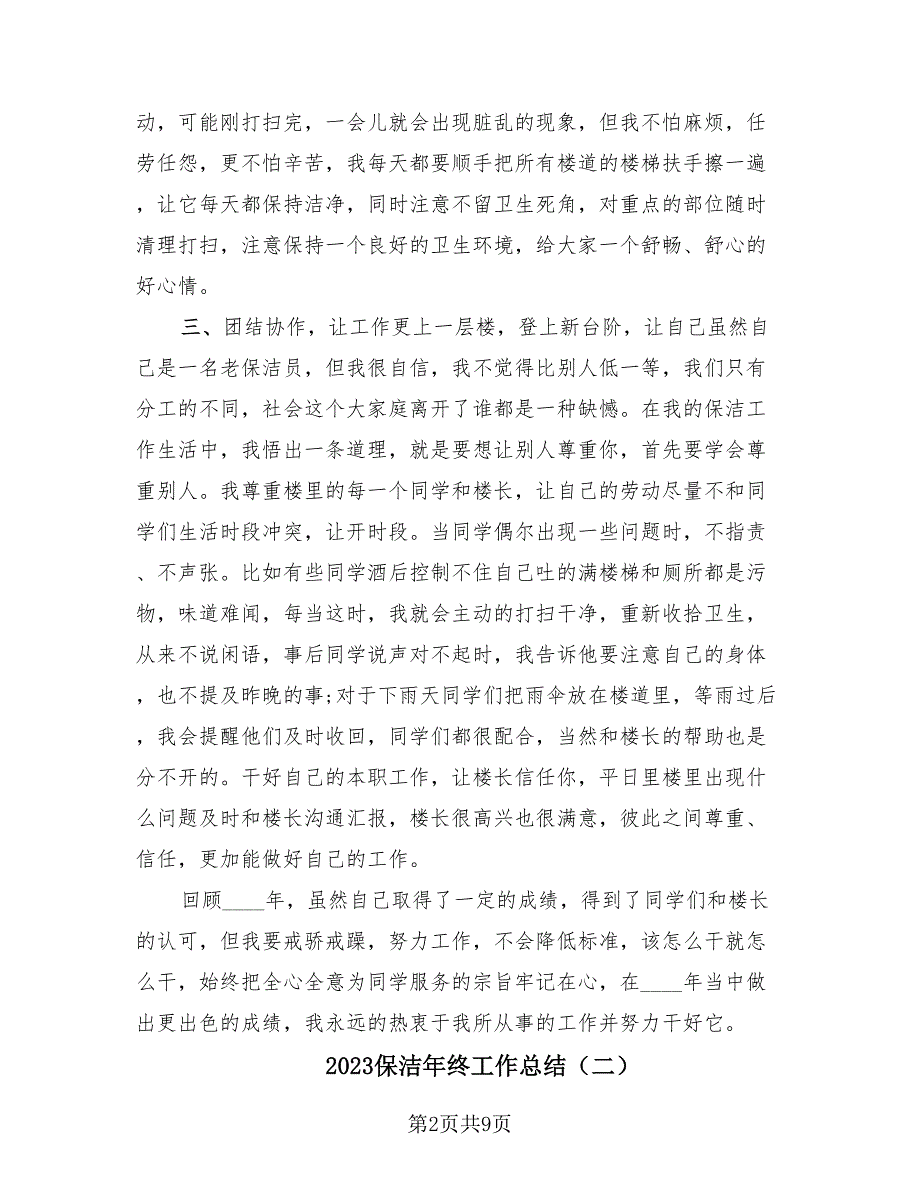 动，可能刚打扫完，一会儿就会出现脏乱的现象，但我不怕麻烦，任
劳任怨，更不怕辛苦，我每天都要顺手把所有楼道的楼梯扶手擦一遍
，让它每天都保持洁净，同时注意不留卫生死角，对重点的部位随时
清理打扫，注意保持一个良好的卫生环境，给大家一个舒畅、舒心的
好心情。
三、团结协作，让工作更上一层楼，登上新台阶，让自己虽然自
己是一名老保洁员，但我很自信，我不觉得比别人低一等，我们只有
分工的不同，社会这个大家庭离开了谁都是一种缺憾。在我的保洁工
作生活中，我悟出一条道理，就是要想让别人尊重你，首先要学会尊
重别人。我尊重楼里的每一个同学和楼长，让自己的劳动尽量不和同
学们生活时段冲突，让开时段。当同学偶尔出现一些问题时，不指责
、不声张。比如有些同学酒后控制不住自己吐的满楼梯和厕所都是污
物，味道难闻，每当这时，我就会主动的打扫干净，重新收拾卫生，
从来不说闲语，事后同学说声对不起时，我告诉他要注意自己的身体
，也不提及昨晚的事;对于下雨天同学们把雨伞放在楼道里，等雨过后
，我会提醒他们及时收回，同学们都很配合，当然和楼长的帮助也是
分不开的。干好自己的本职工作，让楼长信任你，平日里楼里出现什
么问题及时和楼长沟通汇报，楼长很高兴也很满意，彼此之间尊重、
信任，更加能做好自己的工作。
回顾____年，虽然自己取得了一定的成绩，得到了同学们和楼长
的认可，但我要戒骄戒躁，努力工作，不会降低标准，该怎么干就怎
么干，始终把全心全意为同学服务的宗旨牢记在心，在____年当中做
出更出色的成绩，我永远的热衷于我所从事的工作并努力干好它。
2023保洁年终工作总结（二）
第2页共9页